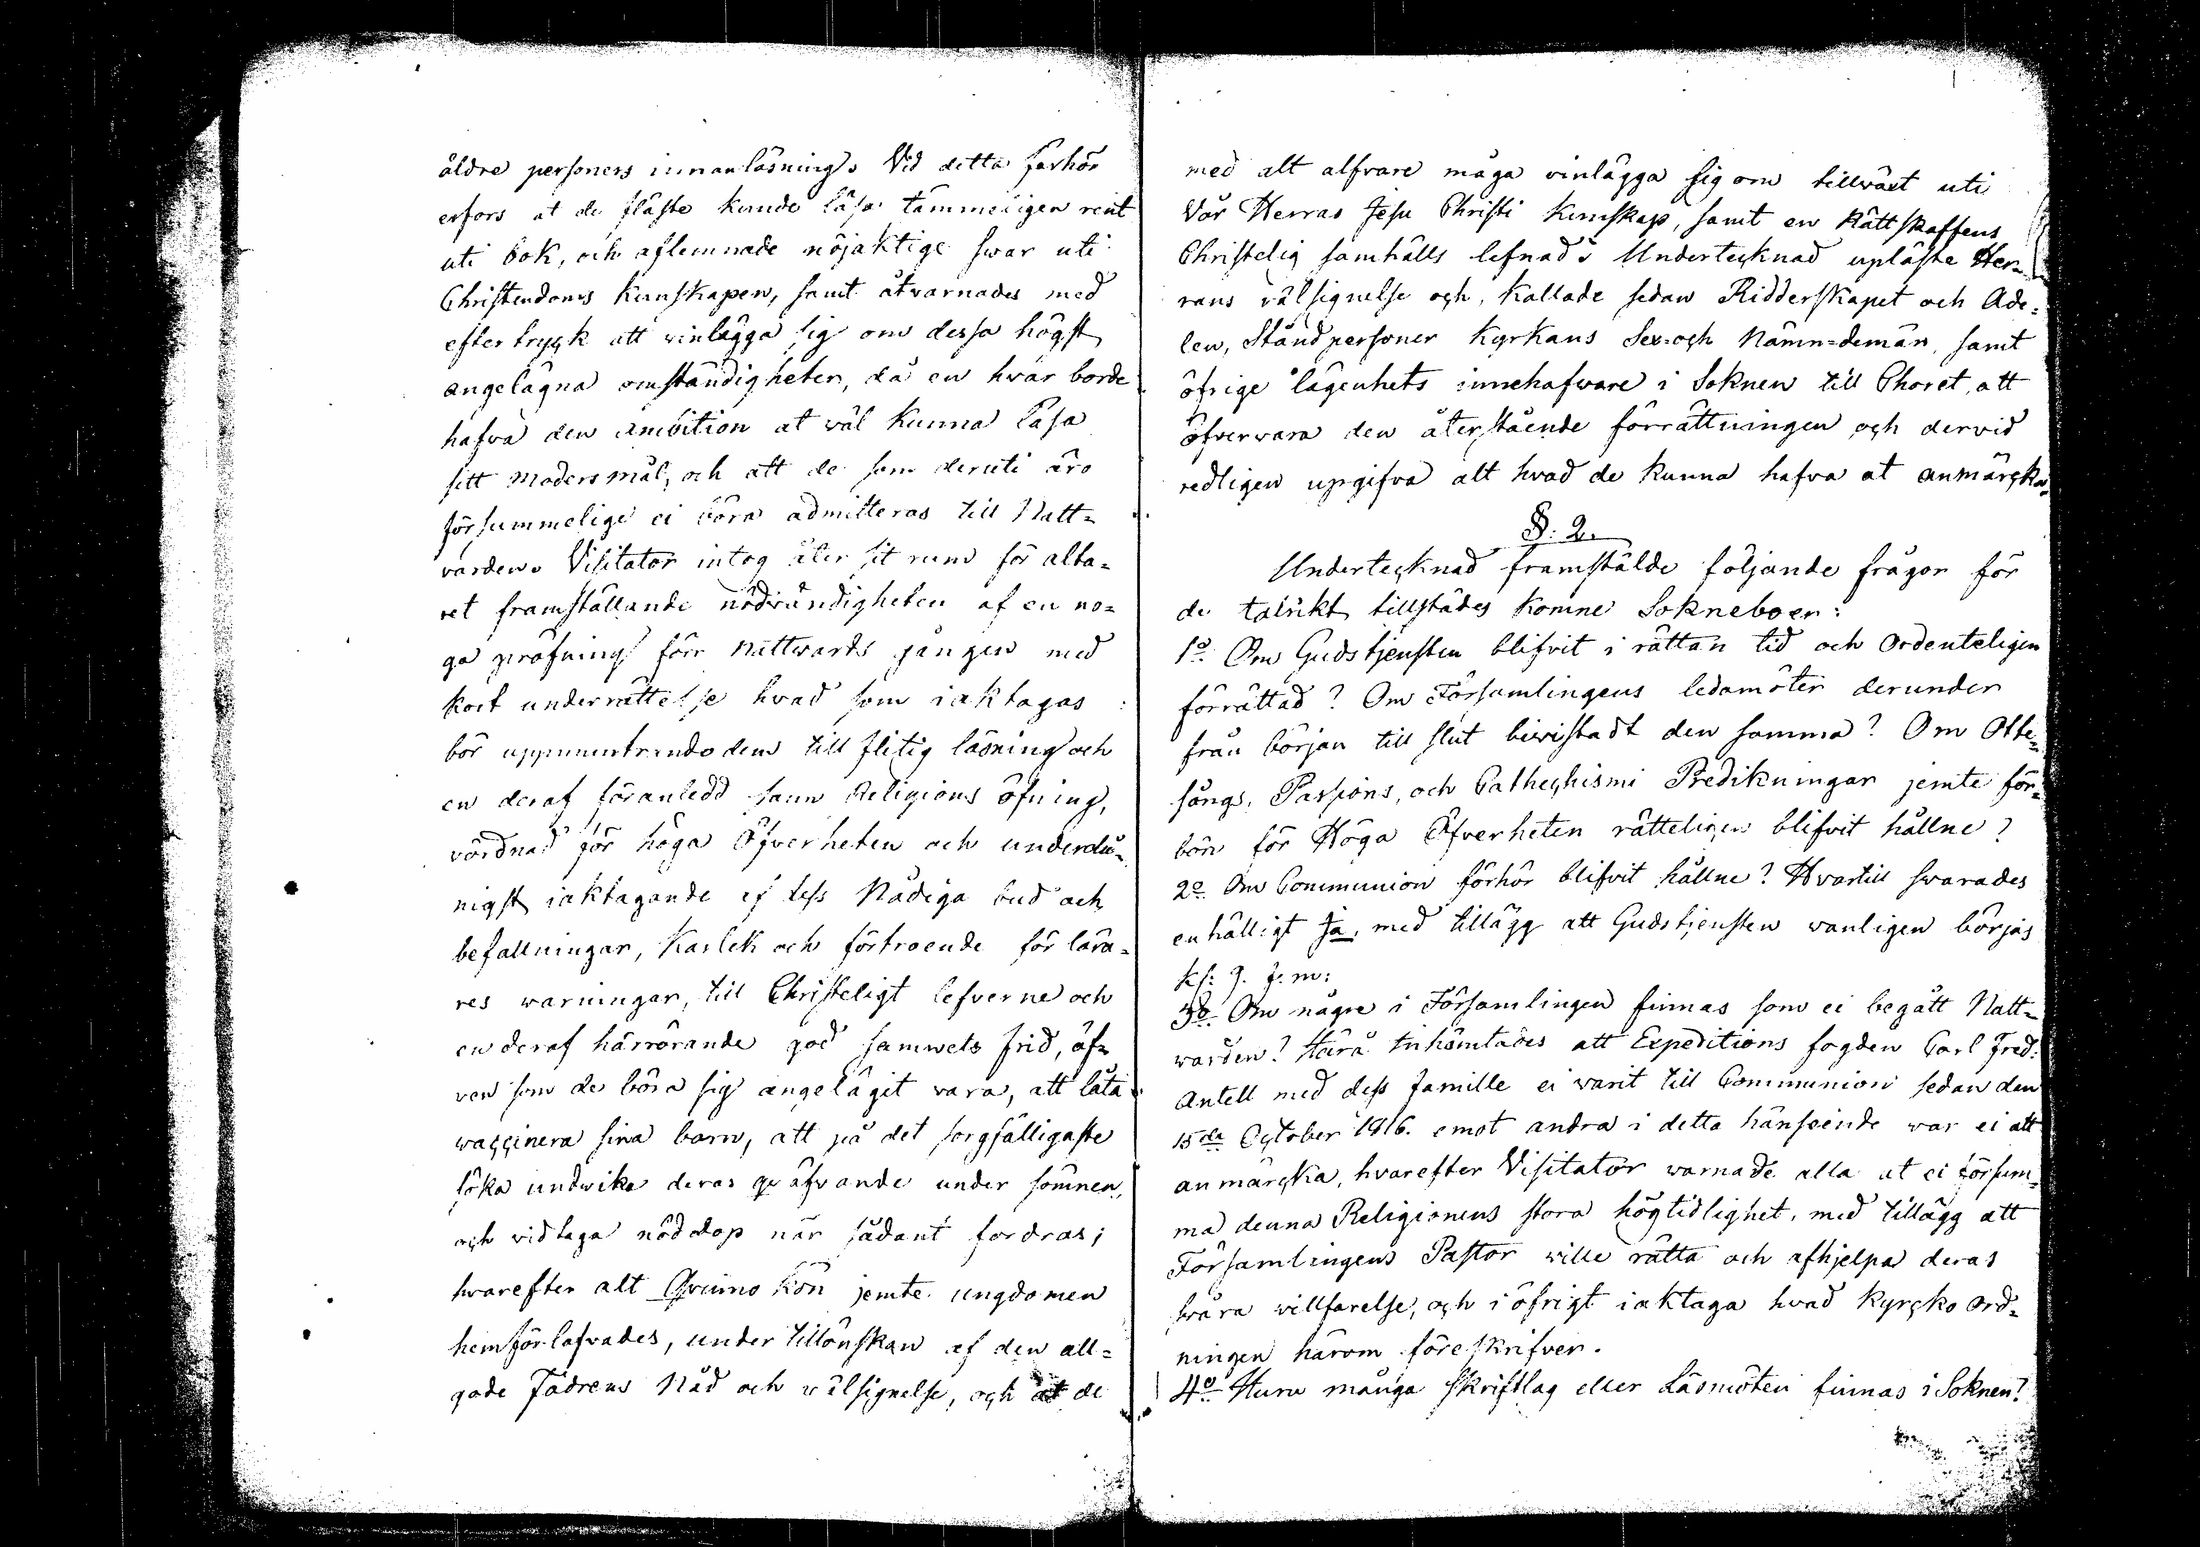 äldre personers innanläsning. Vid detta förhör
erfors at de fläste kunde läsa tämmeligen rent
uti bok, och aflemnade nöjaktige swar uti
Christendoms kunskapen, samt åtvarnades med
eftertryçk att vinlägga sig om dessa högst
angelägna omständigheter, då en hvar borde
hafva den ambition at wäl kunna läsa
sitt modersmål, och att de som deruti äro
försummelige ei böra admitteras till Natt=
varden. Visitator intog åter sit rum för alta=
ret framställande nödvändigheten af en no=
ga pröfning förr nattwards gången med
kort underrättelse hvad som iakttagas
bör uppmuntrande dem till flitig läsning och
en deraf föranledd sann Religions öfning,
vördnad för höga Öfverheten och underdå=
nigst iakttagande af dess Nådiga bud och
befallningar, Kärlek och förtroende för lära=
res warningar, till Christeligt lefverne och
en deraf härrörande god samwets frid, äf=
ven som de böra sig angelägit vara, att låta
waççinera sina barn, att på det sorgfälligaste
söka undwika deras qväfvande under sömnen,
och vidtaga nöddop när sådant fordras;
hvarefter alt Qvinno kön jemte ungdomen
hemförlofvades, under tillönskan af den all=
gode Fadrens Nåd och wälsignelse, och at de
med alt alfvare måga vinlägga sig om tillväxt uti
Vår Herras Jesu Christi Kunskap, samt en Rättskaffens
Christelig samhälls lefnad. Underteçknad upläste Her=
rans välsignelse och, kallade sedan Ridderskapet och Ade=
len, Ståndpersoner Kyrkans Sex= och Nämn=demän, samt
öfrige lägenhets innehafvare i Soknen till Choret, att
öfvervara den återstående förrättningen och dervid
redligen upgifva alt hvad de kunna hafva at anmärçka.
§. 2.
Underteçknad framstälde följande frågor för
de talrikt tillstädes komne Sokneboer:
1o Om Gudstjensten blifvit i rättan tid och ordenteligen
förrättad? Om Församlingens ledamöter derunder
från början till slut bivistadt den samma? Om Otte=
sångs, Passions, och Catheçhismi Predikningar jemte för=
bön för Höga Öfverheten rätteligen blifvit hållne?
2o Om Communion förhör blifvit hållne? Hvartill svarades
enhälligt Ja, med tillägg att Gudstjensten wanligen börjas
kl: 9. f: m:
3o Om några i Församlingen finnas som ei begått Natt=
warden? Härå inhämtades att Expeditions fogden Carl Fred:
Antell med dess famille ei varit till Communion sedan den
15de Oçtober 1816. emot andra i detta hänseende war ei att
anmärçka, hvarefter Visitator warnade alla at ei försum=
ma denna Religionens stora högtidlighet, med tillägg att
Församlingens Pastor wille rätta och afhjelpa deras
svåra willfarelse, och i öfrigt iakttaga hvad Kyrçko Ord=
ningen härom föreskrifver.
4o Huru många Skriftlag eller Läsmöten finnas i Soknen?